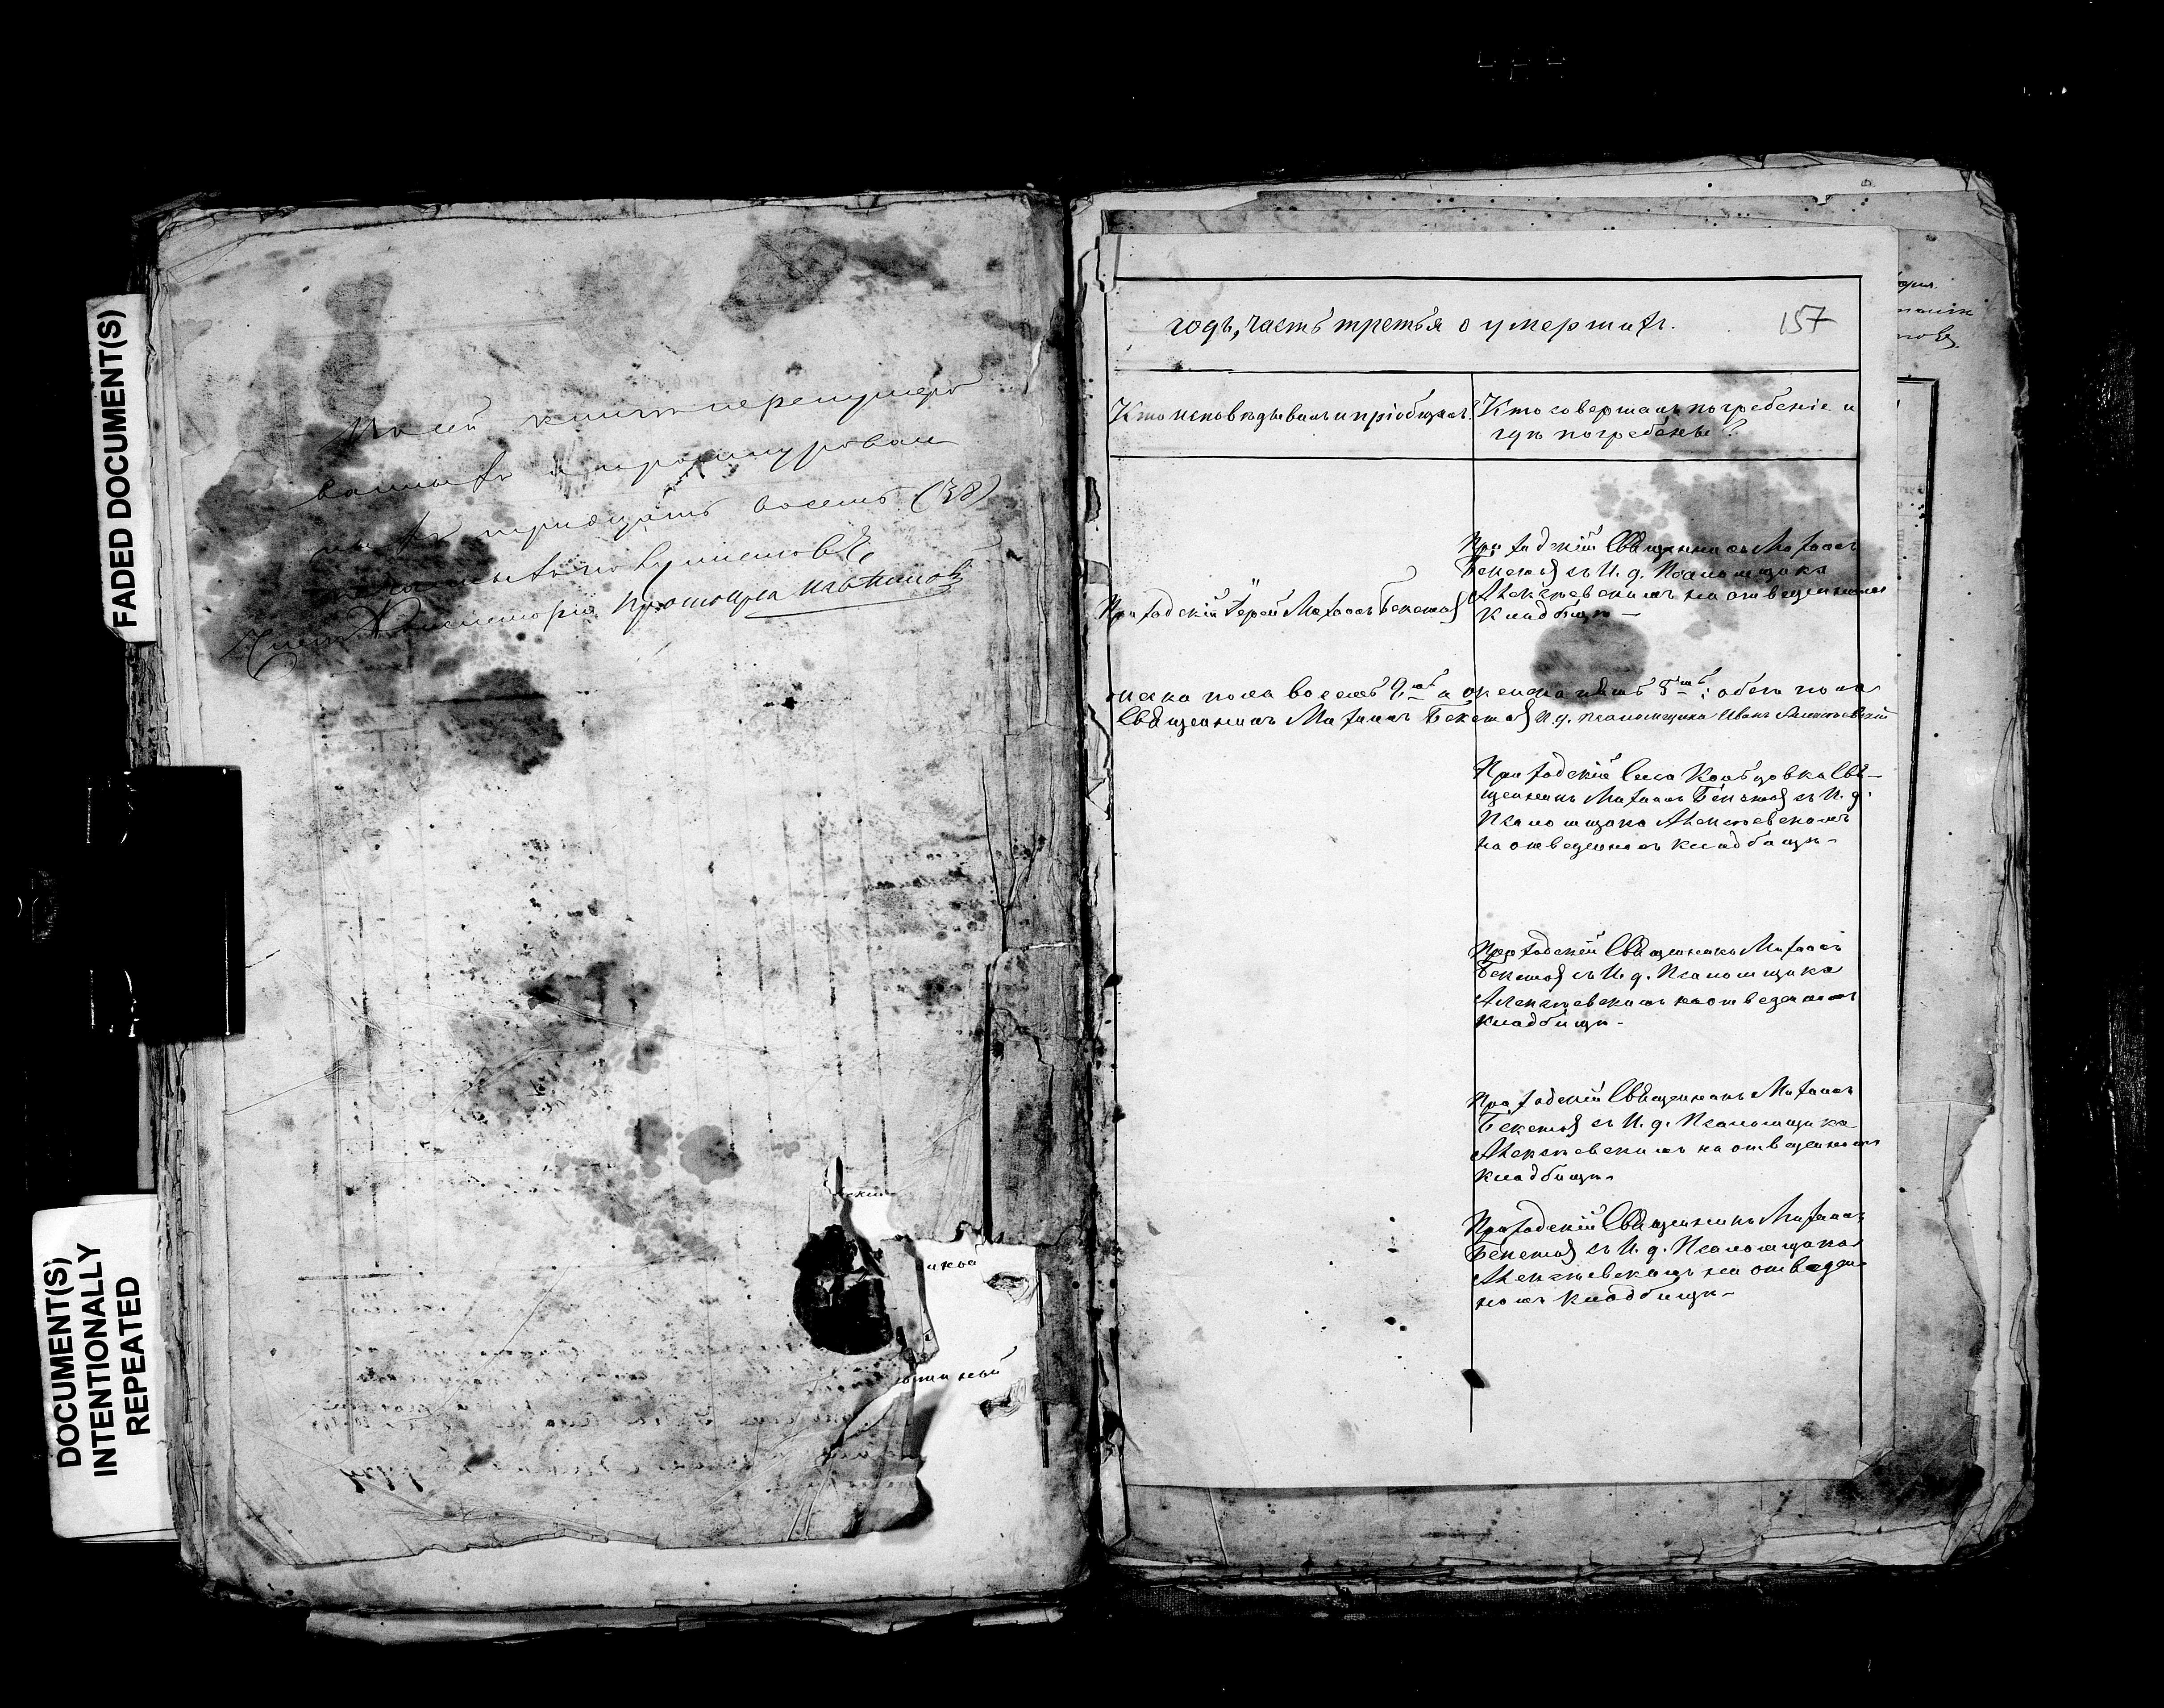 FADED DOCUMENT(S)
DOCUMENT(S)
INTENTIONALLY
REPEATED
книгѣ перенумеро
ванныхъ и прошнурован
ныхъ тридцать восемь (38)
листовъ
Членъ Консисторіи Протоіерей
годъ, часть третья о умершихъ.
157
Кто исповѣдывалъ и пріобщалъ?
Кто совершалъ погребеніе и
гдѣ погребены?
Приходскій Іерей Михаилъ Бекетов
Приходскій Священникъ Михаилъ
Бекетов съ И. д. Псаломщика
Алексѣевскимъ на отведенномъ
кладбищѣ —
жеска пола восемь и женска пять 5ть; обего пола
Священникъ Михаилъ Бекетов И. д. псаломщика Иванъ Алексѣевскій
Приходскій Села Свя-
щенникъ Михаилъ Бекетов съ И. д.
Псаломщика Алексѣевскимъ
на отведенномъ кладбищѣ -
Приходскій Священникъ Михаилъ
Бекетов съ И. д. Псаломщика
Алексѣевскимъ на отведеномъ
кладбищѣ -
Приходскій Священникъ Михаилъ
Бекетов съ И. д. Псаломщика
Алексѣевскимъ на отведенномъ
кладбищѣ.
Приходскій Священникъ Михаилъ
Бекетов съ И. д. Псаломщика
Алексѣевскимъ на отведен
номъ кладбищѣ -